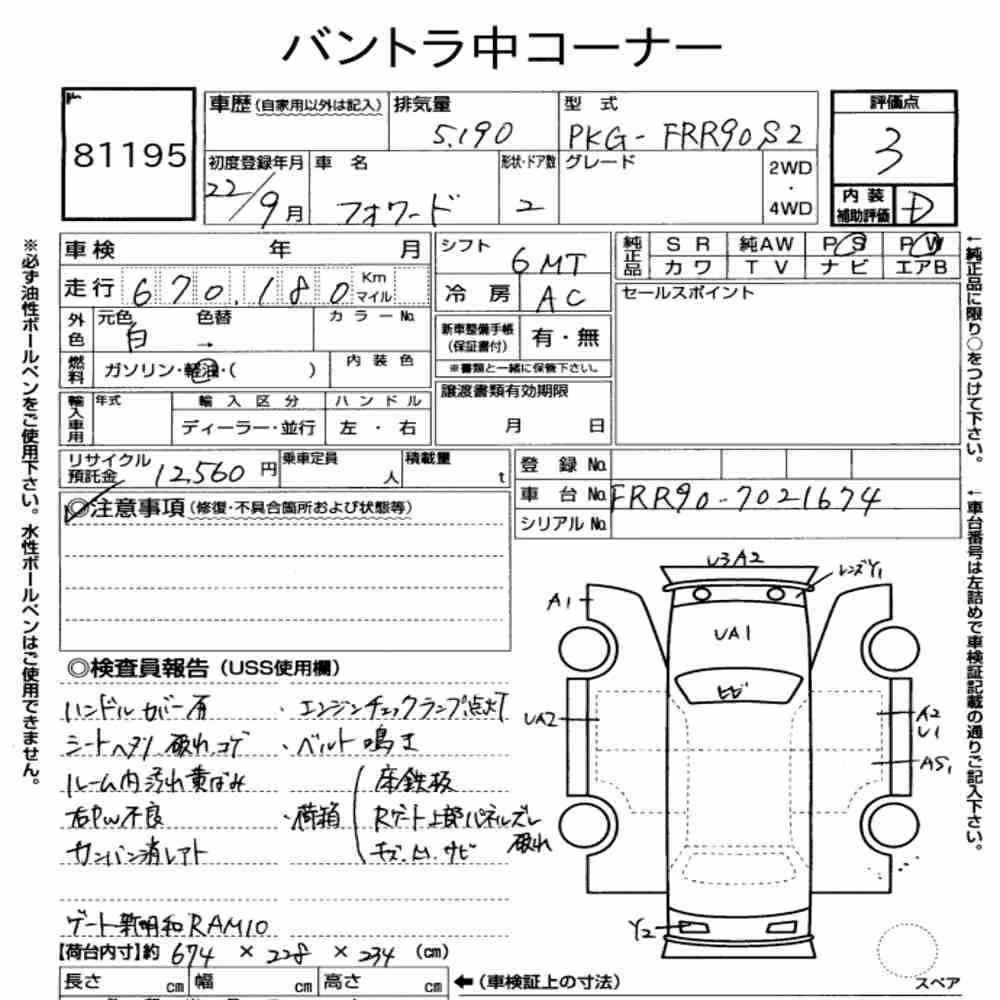 バントラ中コーナー
81195
車歴(自家用以外は記入) 排気量 型式 評価点
5,190 PKG-FRR90S2 3
初度登録年月 車名 形状・ドア数 グレード 2WD・4WD
22/9月 フォワード 2
内装補助評価 D
車検 年 月
シフト 6MT
純正品 SR 純AW PS PW
カワ TV ナビ エアB
走行 670,180 Km マイル
冷房 AC
セールスポイント
外色 元色 白 色替 → カラーNo.
新車整備手帳(保証書付) 有・無
※書類と一緒に保管下さい。
燃料 ガソリン・軽油・( ) 内装色
輸入車用 年式 輸入区分 ハンドル
ディーラー・並行 左・右
譲渡書類有効期限
月 日
リサイクル預託金 12,560円 乗車定員 人 積載量 t
登録No.
車台No. FRR90-7021674
シリアルNo.
◎注意事項(修復・不具合箇所および状態等)
◎検査員報告(USS使用欄)
ハンドルカバー有
シートヘタリ 破れ コゲ
ルーム内汚れ黄ばみ
右PW不良
カンバン消しアト
・エンジンチェックランプ点灯
・ベルト鳴き
・荷箱
床鉄板
Rゲート上部パネルズレ
破れ
キズ.凹.サビ
ゲート新明和RAM10
【荷台内寸】約 674 × 228 × 234 (cm)
長さ cm 幅 cm 高さ cm ←(車検証上の寸法)
U3A2
レンズY1
A1
UA1
ヒビ
UA2
A2
U1
AS1
Y2
スペア
※必ず油性ボールペンをご使用下さい。水性ボールペンはご使用できません。
←純正品に限り○をつけて下さい。
←車台番号は左詰めで車検証記載の通りご記入下さい。